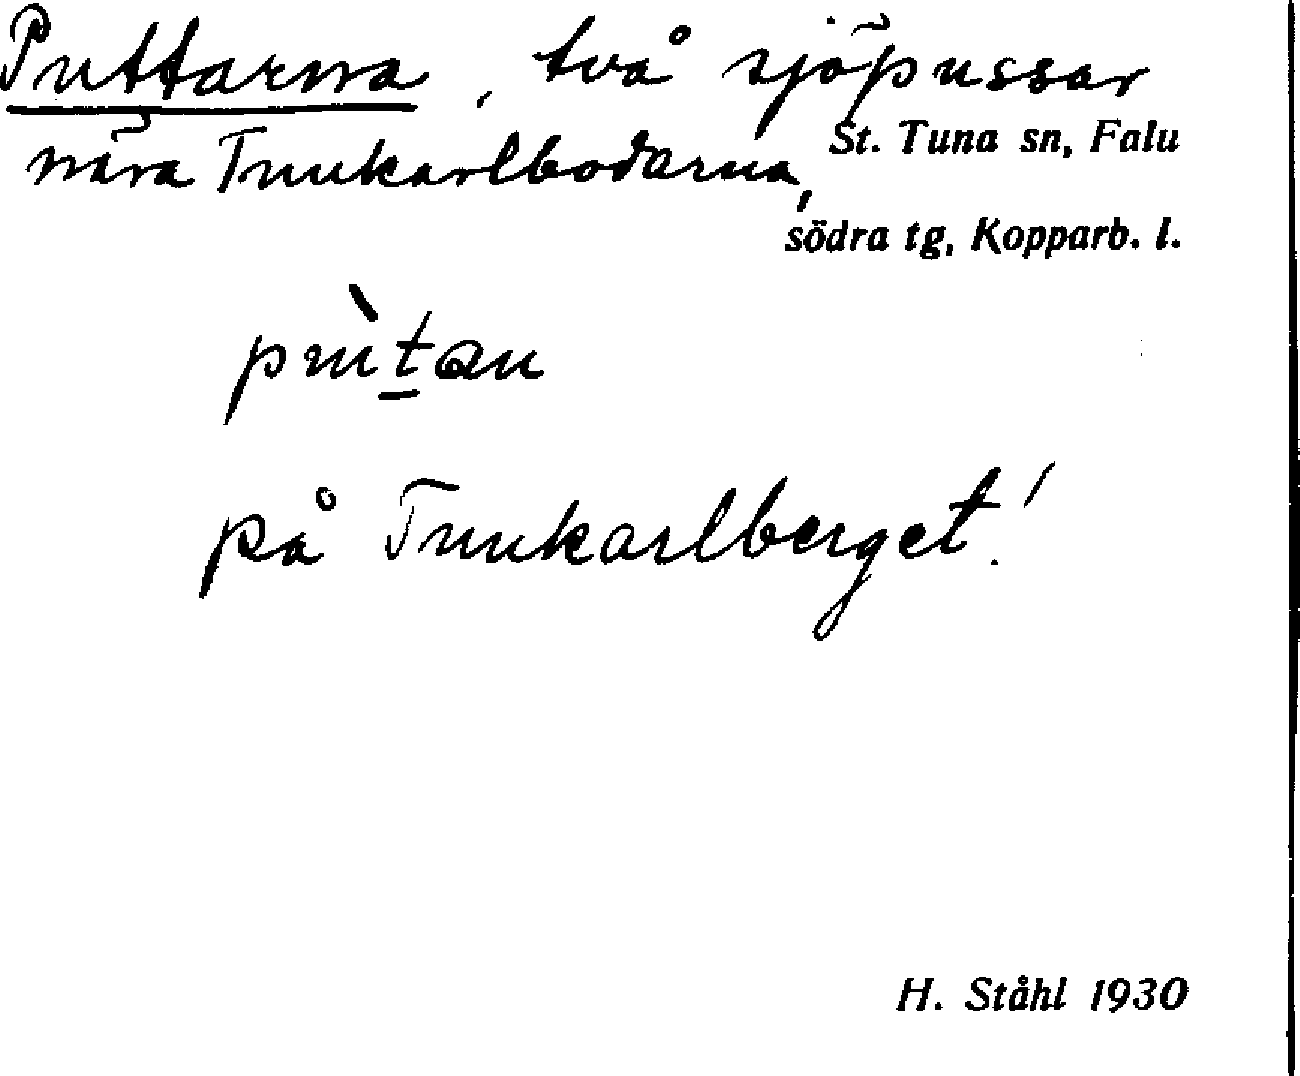 Puttarna, två sjöpussar
nära Tunkarlbodarna,
St. Tuna sn, Falu
södra tg, Kopparb. l.
på Tunkarlberget!
H. Ståhl 1930